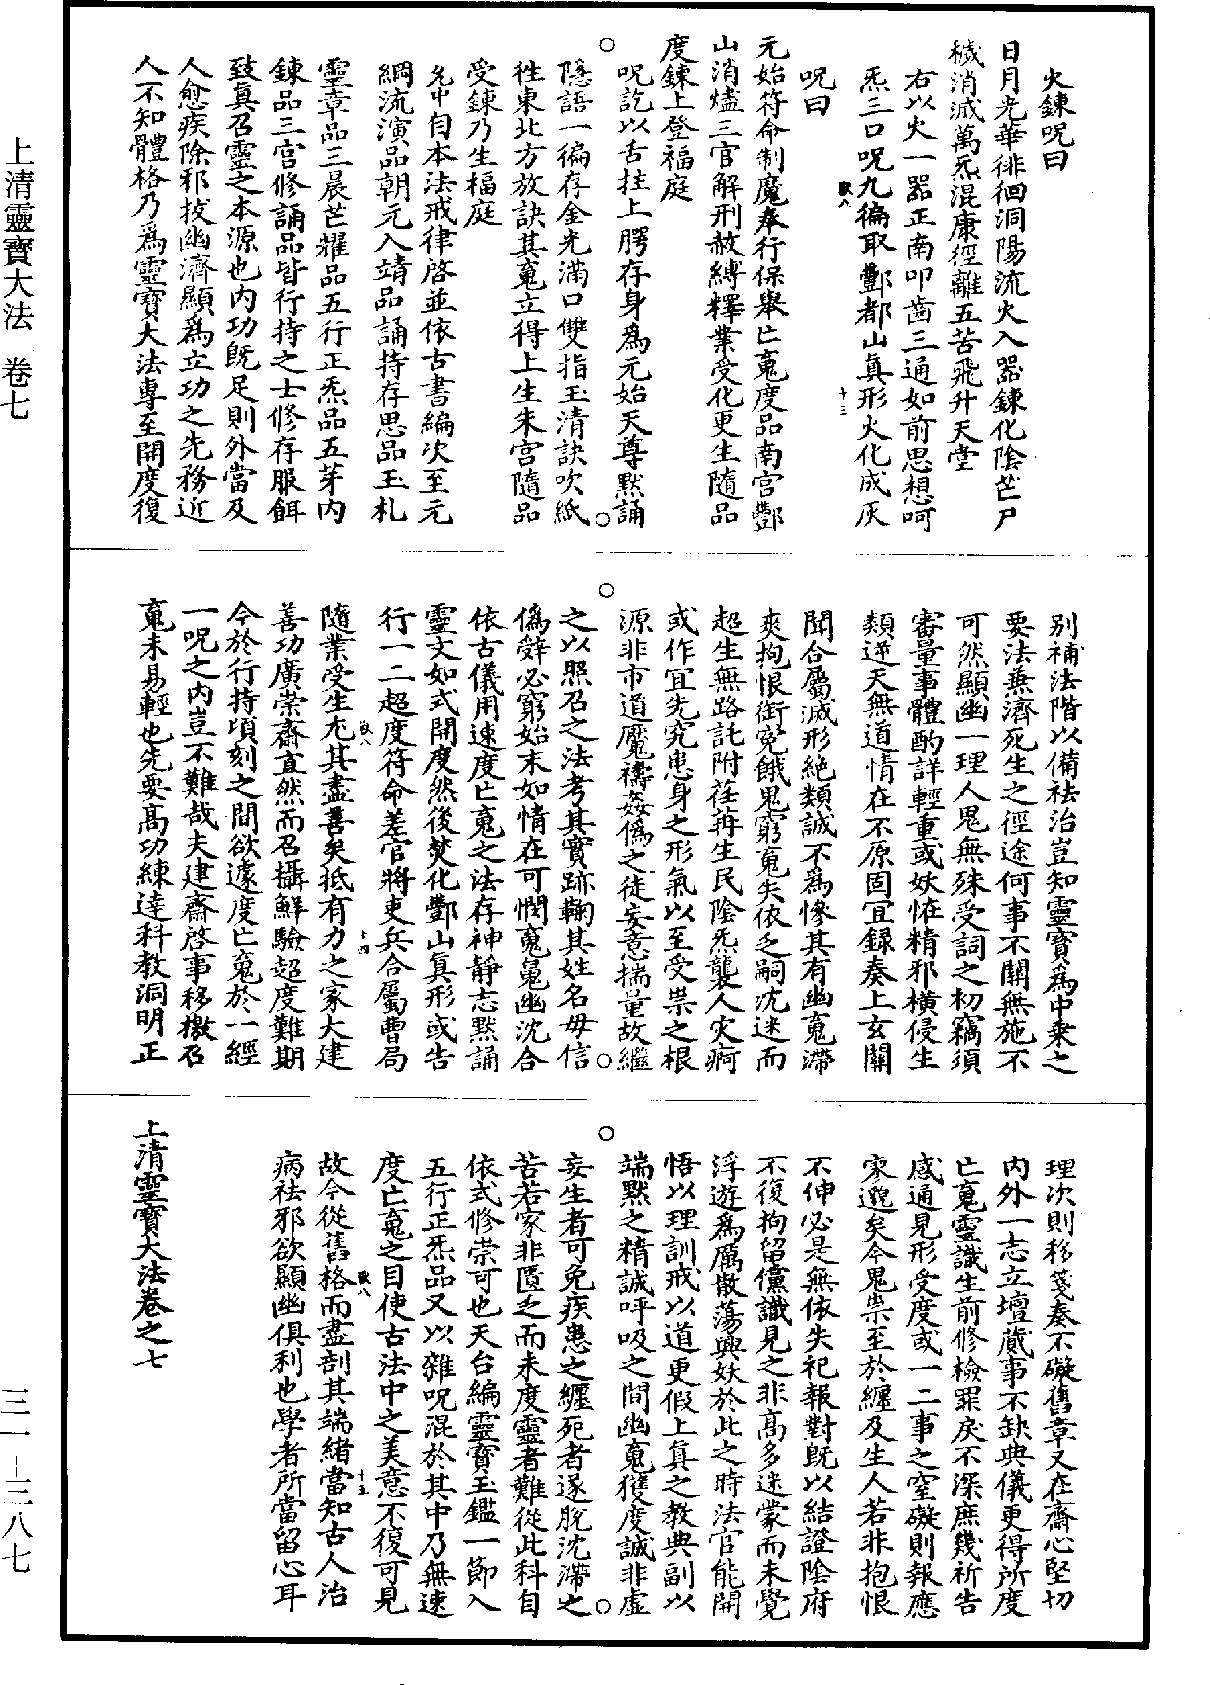 上清靈寶大法　卷七
三一－三八七
火鍊呪曰
日月光華徘徊洞陽流火入器鍊化陰芒尸
穢消滅萬炁混康徑離五苦飛升天堂
右以火一器正南叩齒三通如前思想呵
炁三口呪九徧取酆都山真形火化成灰
呪曰
元始符命制魔奉行保舉亡䰟度品南宮酆
山消燼三官解刑赦縛釋業受化更生隨品
度鍊上登福庭
呪訖以舌拄上腭存身爲元始天尊默誦
隱語一徧存金光滿口雙指玉清訣吹紙
徃東北方放訣其䰟立得上生朱宮隨品
受鍊乃生福庭
允中自本法戒律啓並依古書編次至元
綱流演品朝元入靖品誦持存思品玉札
靈章品三晨芒耀品五行正炁品五芽内
鍊品三宮修誦品皆行持之士修存服餌
致真召靈之本源也内功旣足則外當及
人愈疾除邪拔幽濟顯爲立功之先務近
人不知體格乃爲靈寶大法專至開度復
別補法階以備袪治豈知靈寶爲中乘之
要法兼濟死生之徑途何事不關無施不
可然顯幽一理人鬼無殊受詞之初竊須
審量事體酌詳輕重或妖怪精邪橫侵生
類逆天無道情在不原固宜録奏上玄關
聞合屬滅形絶類誠不爲慘其有幽䰟滯
爽拘恨銜寃餓鬼窮䰟失依乏嗣沈迷而
超生無路託附荏苒生民陰炁襲人灾痾
或作宜先究患身之形氣以至受祟之根
源非市道魘禱姦僞之徒妄意揣量故繼
之以照召之法考其實跡鞠其姓名毋信
僞辭必窮始末如情在可憫䰟䰟幽沈合
依古儀用速度亡䰟之法存神靜志默誦
靈文如式開度然後焚化酆山真形或告
行一二超度符命差官將吏兵合屬曹局
隨業受生尤其盡善矣抵有力之家大建
善功廣崇齋直然而召攝鮮驗超度難期
今於行持頃刻之間欲遽度亡䰟於一經
一呪之内豈不難哉夫建齋啓事移檄召
䰟未易輕也先要高功練達科教洞明正
理次則移箋奏不礙舊章又在齋心堅切
内外一志立壇蕆事不缺典儀更得所度
亡䰟靈識生前修檢罪戾不深庶幾祈告
感通見形受度或一二事之窒礙則報應
寥邈矣今鬼祟至於纏及生人若非抱恨
不伸必是無依失祀報對旣以結證陰府
不復拘留儻識見之非高多迷蒙而未覺
浮遊爲厲散蕩興妖於此之時法官能開
悟以理訓戒以道更假上真之教典副以
端默之精誠呼吸之間幽䰟獲度誠非虛
妄生者可免疾患之纏死者遂脫沈滯之
苦若家非匱乏而未度靈者難從此科自
依式修崇可也天台編靈寶玉鑑一節入
五行正炁品又以雜呪混於其中乃無速
度亡䰟之目使古法中之美意不復可見
故今從舊格而盡剖其端緒當知古人治
病袪邪欲顯幽俱利也學者所當留心耳
上清靈寶大法卷之七